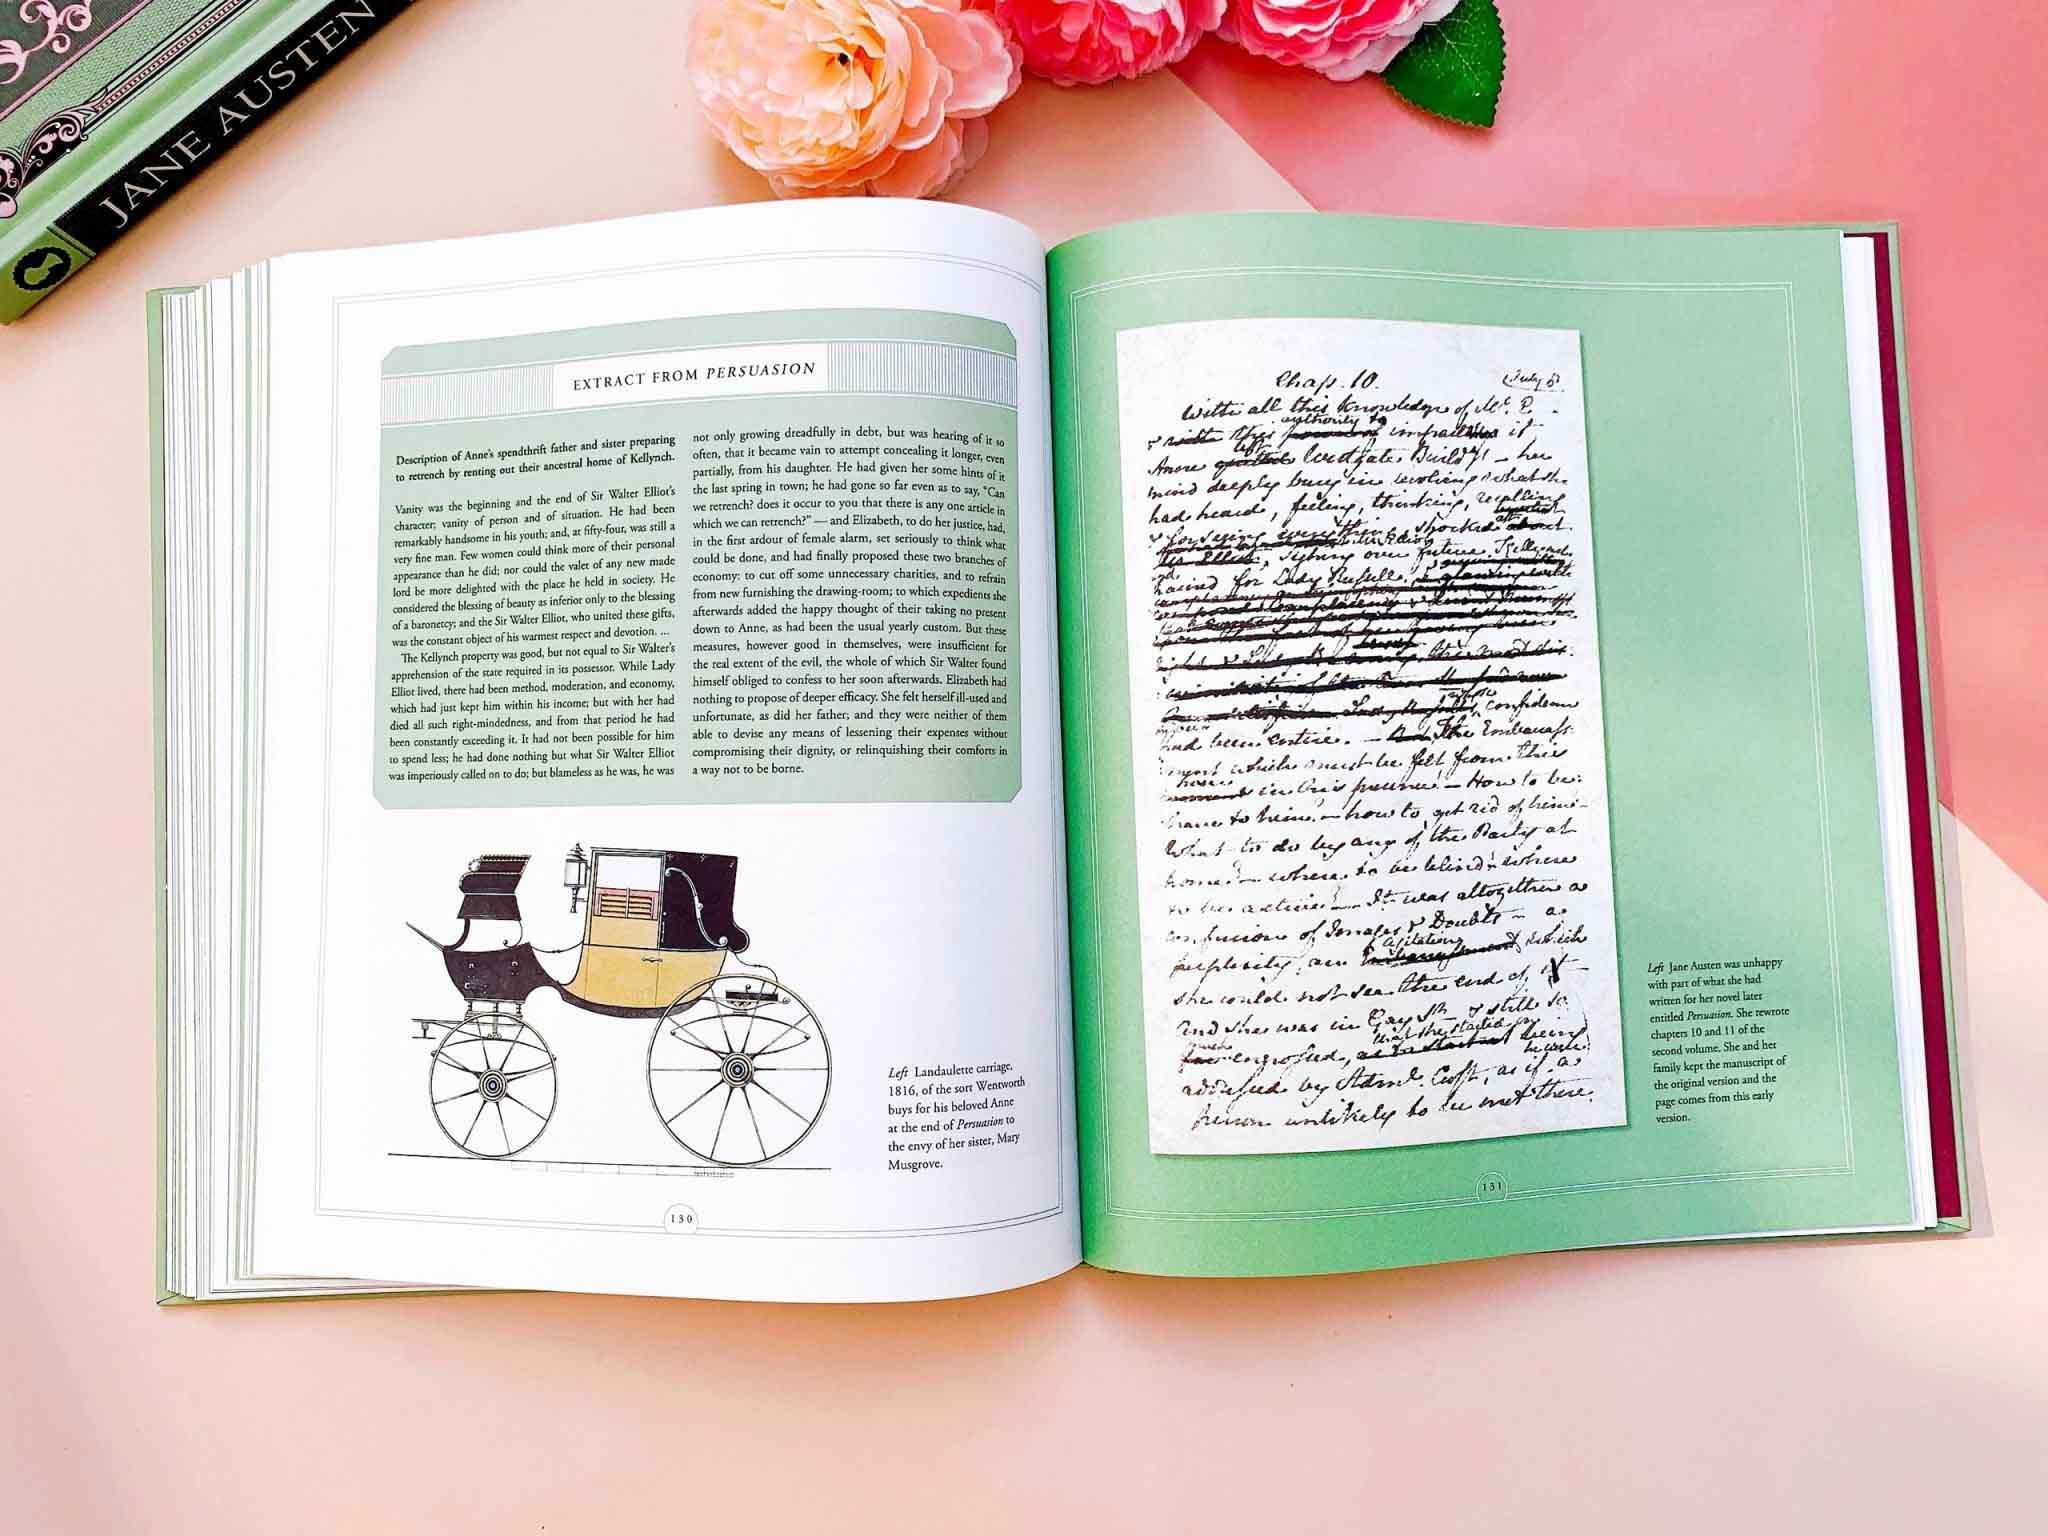 JANE AUSTEN
EXTRACT FROM PERSUASION
Description of Anne's spendthrift father and sister preparing
to retrench by renting out their ancestral home of Kellynch.
Vanity was the beginning and the end of Sir Walter Elliot's
character; vanity of person and of situation. He had been
remarkably handsome in his youth; and, at fifty-four, was still a
very fine man. Few women could think more of their personal
appearance than he did; nor could the valet of any new made
lord be more delighted with the place he held in society. He
considered the blessing of beauty as inferior only to the blessing
of a baronetcy; and the Sir Walter Elliot, who united these gifts,
was the constant object of his warmest respect and devotion. ...
The Kellynch property was good, but not equal to Sir Walter's
apprehension of the state required in its possessor. While Lady
Elliot lived, there had been method, moderation, and economy,
which had just kept him within his income; but with her had
died all such right-mindedness, and from that period he had
been constantly exceeding it. It had not been possible for him
to spend less; he had done nothing but what Sir Walter Elliot
was imperiously called on to do; but blameless as he was, he was
not only growing dreadfully in debt, but was hearing of it so
often, that it became vain to attempt concealing it longer, even
partially, from his daughter. He had given her some hints of it
the last spring in town; he had gone so far even as to say, "Can
we retrench? does it occur to you that there is any one article in
which we can retrench?" — and Elizabeth, to do her justice, had,
in the first ardour of female alarm, set seriously to think what
could be done, and had finally proposed these two branches of
economy: to cut off some unnecessary charities, and to refrain
from new furnishing the drawing-room; to which expedients she
afterwards added the happy thought of their taking no present
down to Anne, as had been the usual yearly custom. But these
measures, however good in themselves, were insufficient for
the real extent of the evil, the whole of which Sir Walter found
himself obliged to confess to her soon afterwards. Elizabeth had
nothing to propose of deeper efficacy. She felt herself ill-used and
unfortunate, as did her father; and they were neither of them
able to devise any means of lessening their expenses without
compromising their dignity, or relinquishing their comforts in
a way not to be borne.
Left Landaulette carriage,
1816, of the sort Wentworth
buys for his beloved Anne
at the end of Persuasion to
the envy of her sister, Mary
Musgrove.
130
Chap. 10.
July 8
With all this knowledge of Mr. E
authority to
& this impart it
left
Anne Westgate Buildgs - her
mind deeply busy in revolving what she
had heard, feeling, thinking, recalling
& forseeing everything, shocked
Mr Elliot, sighing over future Kellynch
pained for Lady Russell,
confidence
had been entire. - The Embarrass-
ment which must be felt from this
hour in his presence! - How to be-
have to him? - how to get rid of him? -
what to do by any of the Party at
home? - where to be blind? where
to be active? - It was altogether a
confusion of Images & Doubts - a
perplexity, an agitation which
she could not see the end of
and she was in Gay St & still so
much engrossed, that she started on being
addressed by Adml. Croft, as if he were a
person unlikely to be met there.
Left Jane Austen was unhappy
with part of what she had
written for her novel later
entitled Persuasion. She rewrote
chapters 10 and 11 of the
second volume. She and her
family kept the manuscript of
the original version and the
page comes from this early
version.
131